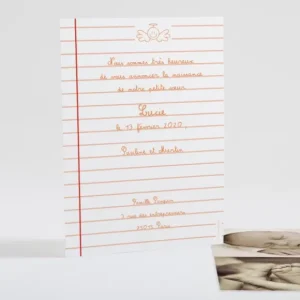 Nous sommes très heureux
de vous annoncer la naissance
de notre petite sœur
Lucie
le 13 février 2020,
Pauline et
3 rue des entrepreneurs
75015 Paris